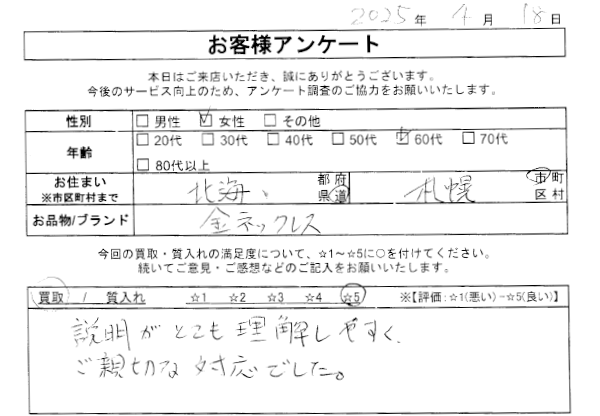 2025年 4月 18日
お客様アンケート
本日はご来店いただき、誠にありがとうございます。
今後のサービス向上のため、アンケート調査のご協力をお願いいたします。
性別 □ 男性 ☑ 女性 □ その他
年齢 □ 20代 □ 30代 □ 40代 □ 50代 ☑ 60代 □ 70代
□ 80代以上
お住まい 北海、 都府 札幌 市町
※市区町村まで 県道 区村
お品物/ブランド 金ネックレス
今回の買取・質入れの満足度について、☆1～☆5に○を付けてください。
続いてご意見・ご感想などのご記入をお願いいたします。
買取 / 質入れ ☆1 ☆2 ☆3 ☆4 ☆5 ※【評価:☆1(悪い)→☆5(良い)】
説明がとても理解しやすく、
ご親切な対応でした。